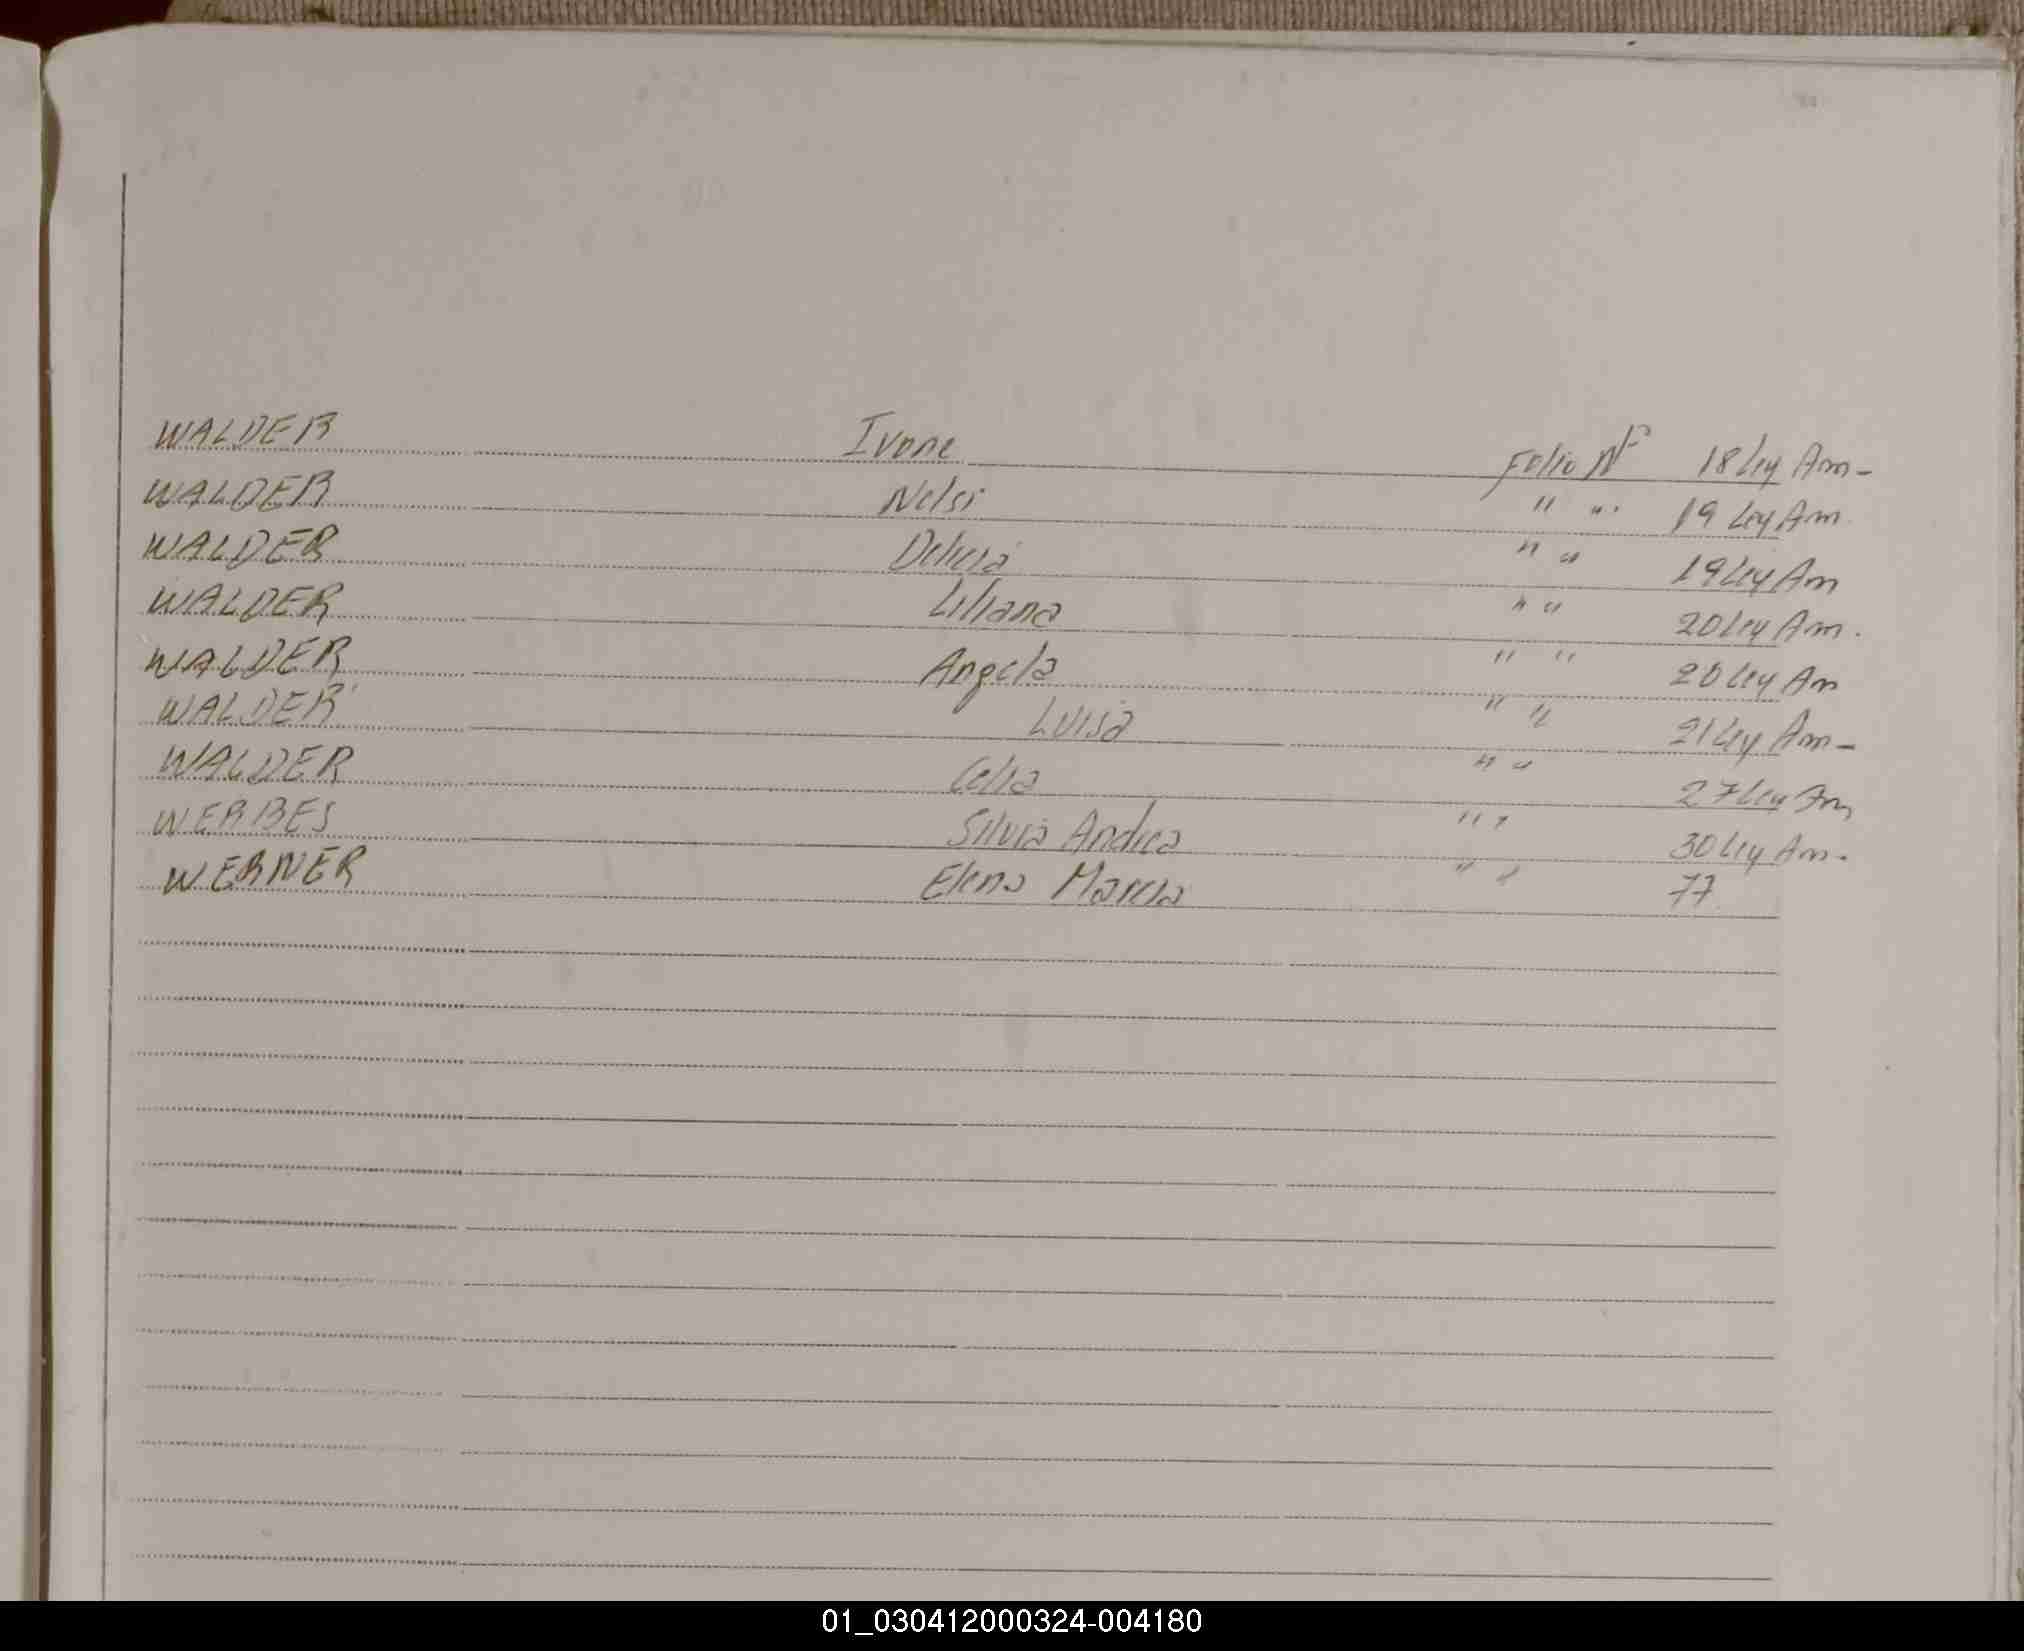 WALDER Ivone Folio Nº 18 Ley Am-
WALDER Nelsi " " 19 Ley Am.
WALDER Delicia " " 19 Ley Am
WALDER Liliana " " 20 Ley Am.
WALDER Angela " " 20 Ley Am
WALDER Luisa " " 21 Ley Am-
WALDER Celia " " 27 Ley Am
WERBES Silvia Andrea " " 30 Ley Am.
WERNER Elena Marcia " " 77
01_030412000324-004180